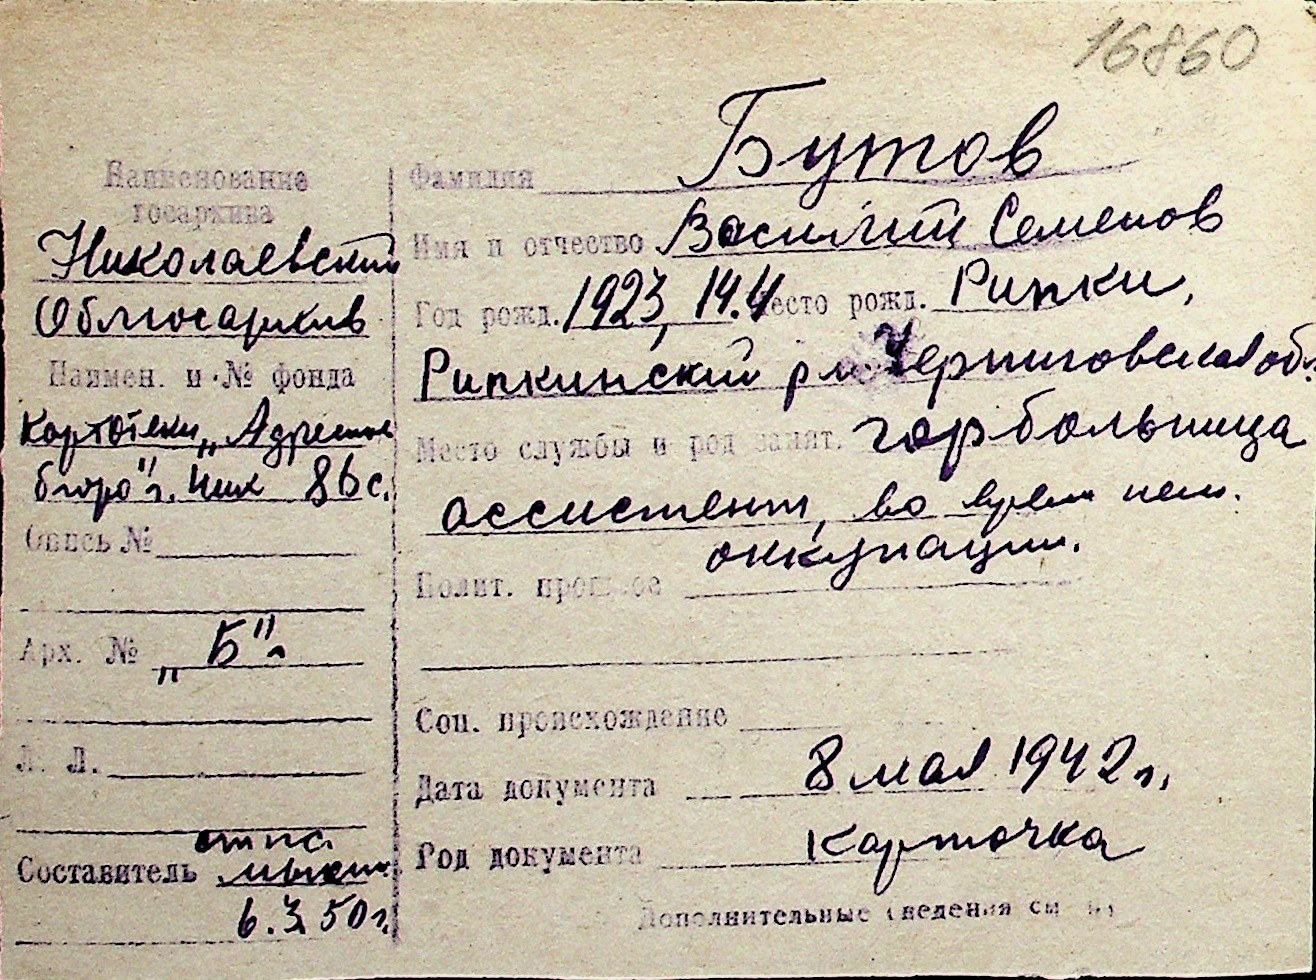 16860
Наименование
госархива
Николаевский
Облгосархив
Наимен. и № фонда
Картотеки „Адресное
бюро" г. Ник 86 с.
Опись №
Арх. № „Б".
Л. Л.
Составитель
6.3.50 г.
Фамилия Бутов
Имя и отчество Василий Семенов
Год рожд. 1923, 14.4 Место рожд. Рипки,
Рипкинский р-н. Черниговская обл.
Место службы и род занят. горбольница
ассистент, во время нем.
оккупации.
Полит. прошлое
Соц. происхождение
Дата документа 8 мая 1942 г.
Род документа Карточка
Дополнительные сведения см